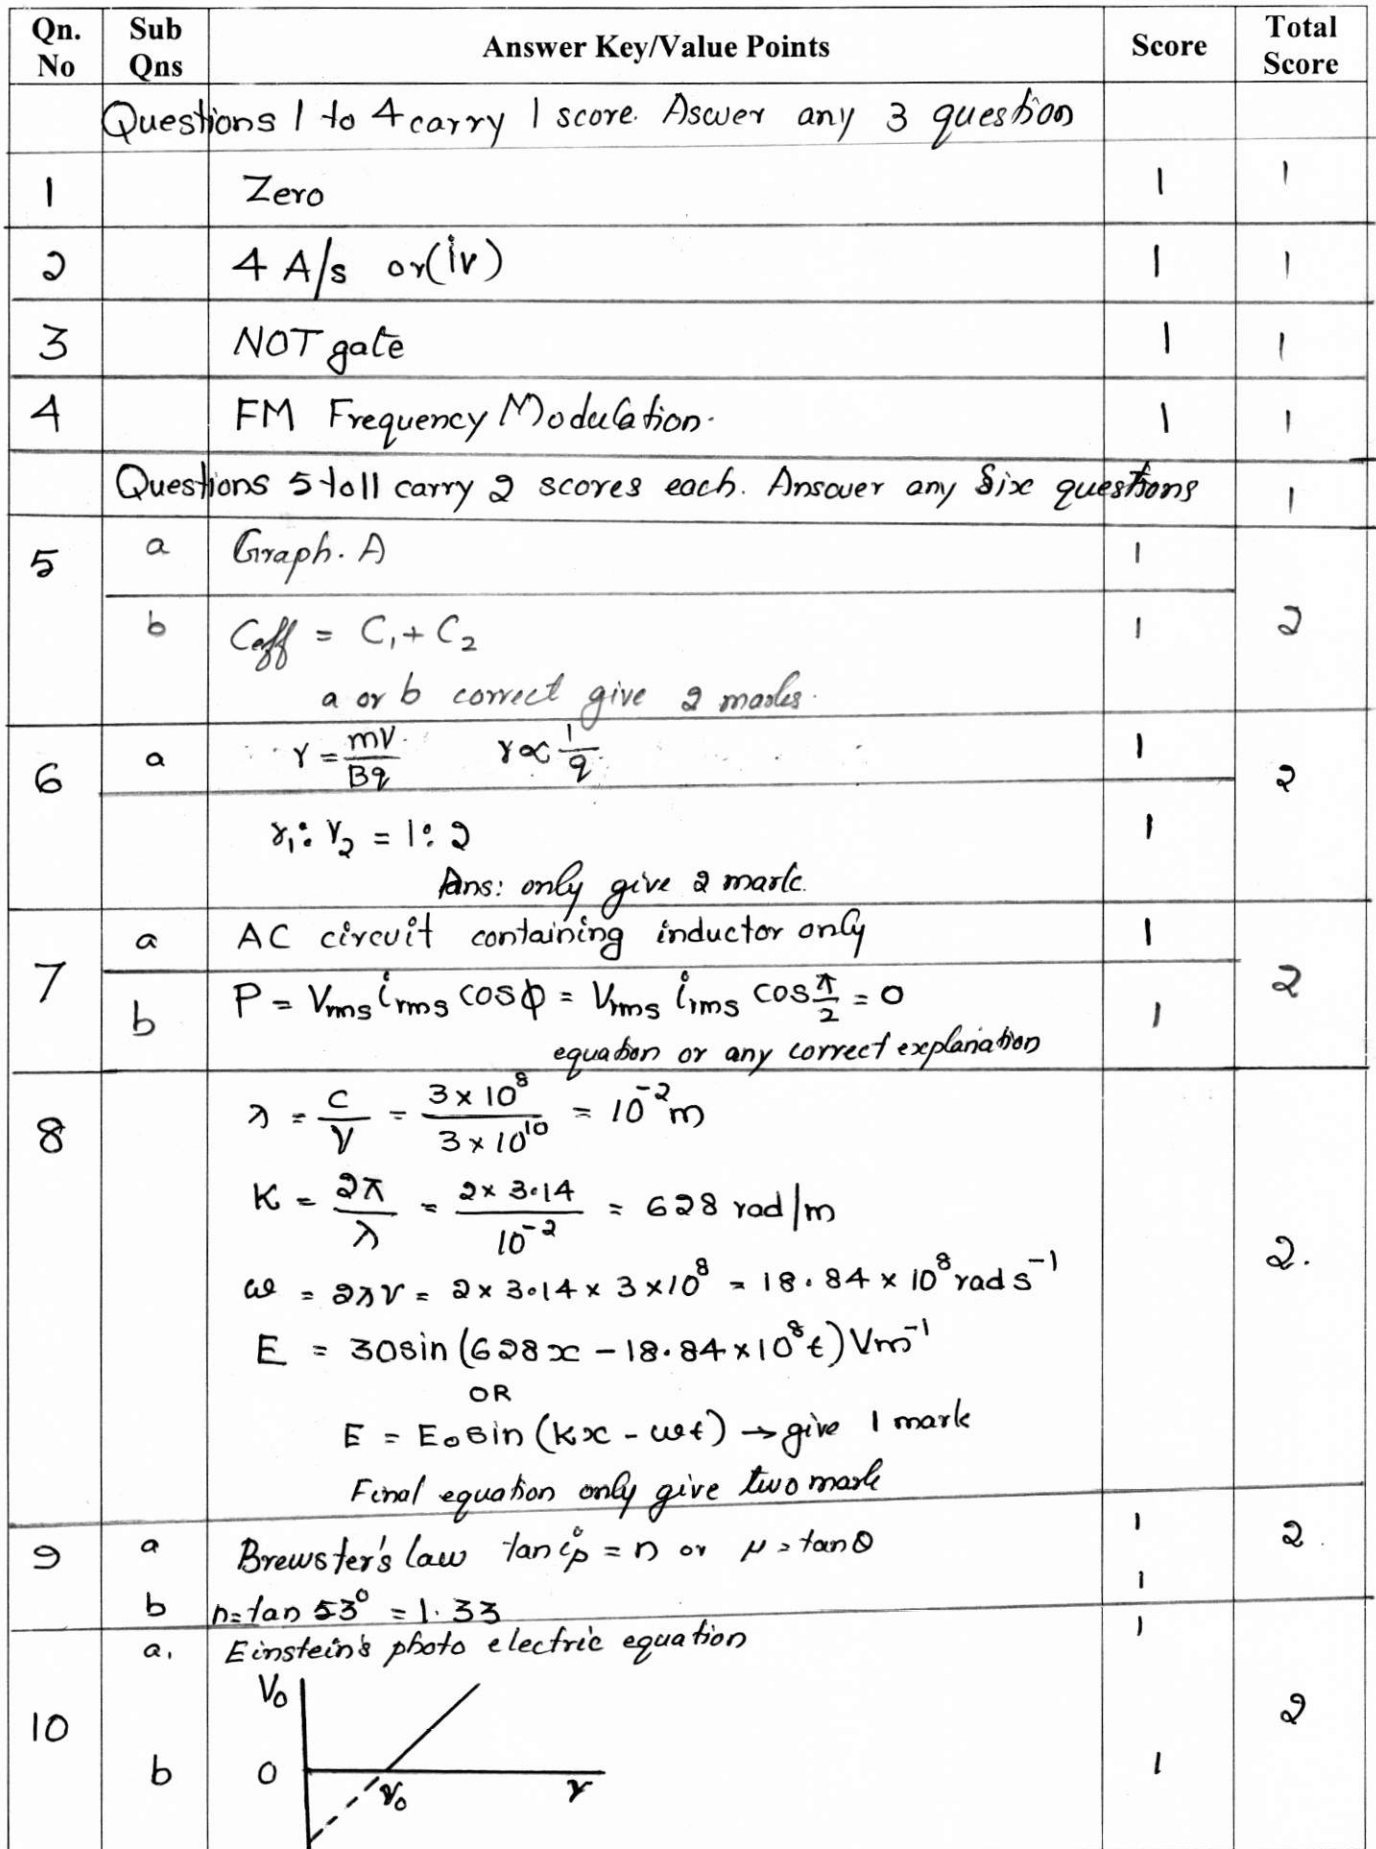 Qn. No Sub Qns Answer Key/Value Points Score Total Score
Questions 1 to 4 carry 1 score. Aswer any 3 question
1 Zero 1 1
2 4 A/s or (iv) 1 1
3 NOT gate 1 1
4 FM Frequency Modulation. 1 1
Questions 5 to 11 carry 2 scores each. Answer any Six questions 1
5 a Graph. A 1
b Ceff = C₁ + C₂ 1 2
a or b correct give 2 marks.
6 a r = mv/Bq r ∝ 1/q 1 2
r₁ : r₂ = 1 : 2 1
Ans: only give 2 mark.
7 a AC circuit containing inductor only 1 2
b P = Vrms irms cosϕ = Vrms irms cos π/2 = 0 1
equation or any correct explanation
8 λ = c/ν = 3 × 10⁸ / 3 × 10¹⁰ = 10⁻² m
K = 2π/λ = 2 × 3.14 / 10⁻² = 628 rad/m
2.
ω = 2πν = 2 × 3.14 × 3 × 10⁸ = 18.84 × 10⁸ rad s⁻¹
E = 30 sin (628x − 18.84 × 10⁸t) Vm⁻¹
OR
E = E₀ sin (Kx − ωt) → give 1 mark
Final equation only give two mark
9 a Brewster's law tan ip = n or μ = tan θ 1 2.
b n = tan 53° = 1.33 1
a. Einstein's photo electric equation 1
V₀
10 2
b 0 ν₀ ν 1